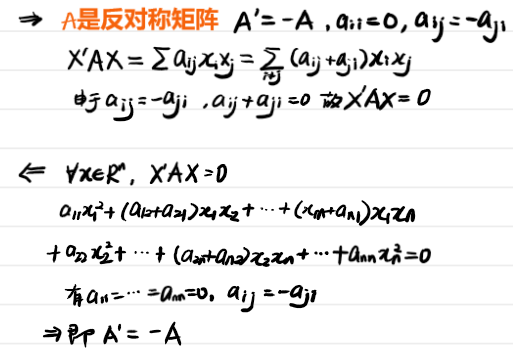 ⇒ A是反对称矩阵 A'=-A , aᵢᵢ=0, aᵢⱼ=-aⱼᵢ
X'AX=∑aᵢⱼxᵢxⱼ=∑_{i≠j}(aᵢⱼ+aⱼᵢ)xᵢxⱼ
由于aᵢⱼ=-aⱼᵢ ,aᵢⱼ+aⱼᵢ=0 故X'AX=0
⇐ ∀x∈Rⁿ, X'AX=0
a₁₁x₁²+(a₁₂+a₂₁)x₁x₂+⋯+(x₁ₙ+aₙ₁)x₁xₙ
+a₂₂x₂²+⋯+(a₂ₙ+aₙ₂)x₂xₙ+⋯+aₙₙxₙ²=0
有a₁₁=⋯=aₙₙ=0, aᵢⱼ=-aⱼᵢ
⇒即 A'=-A